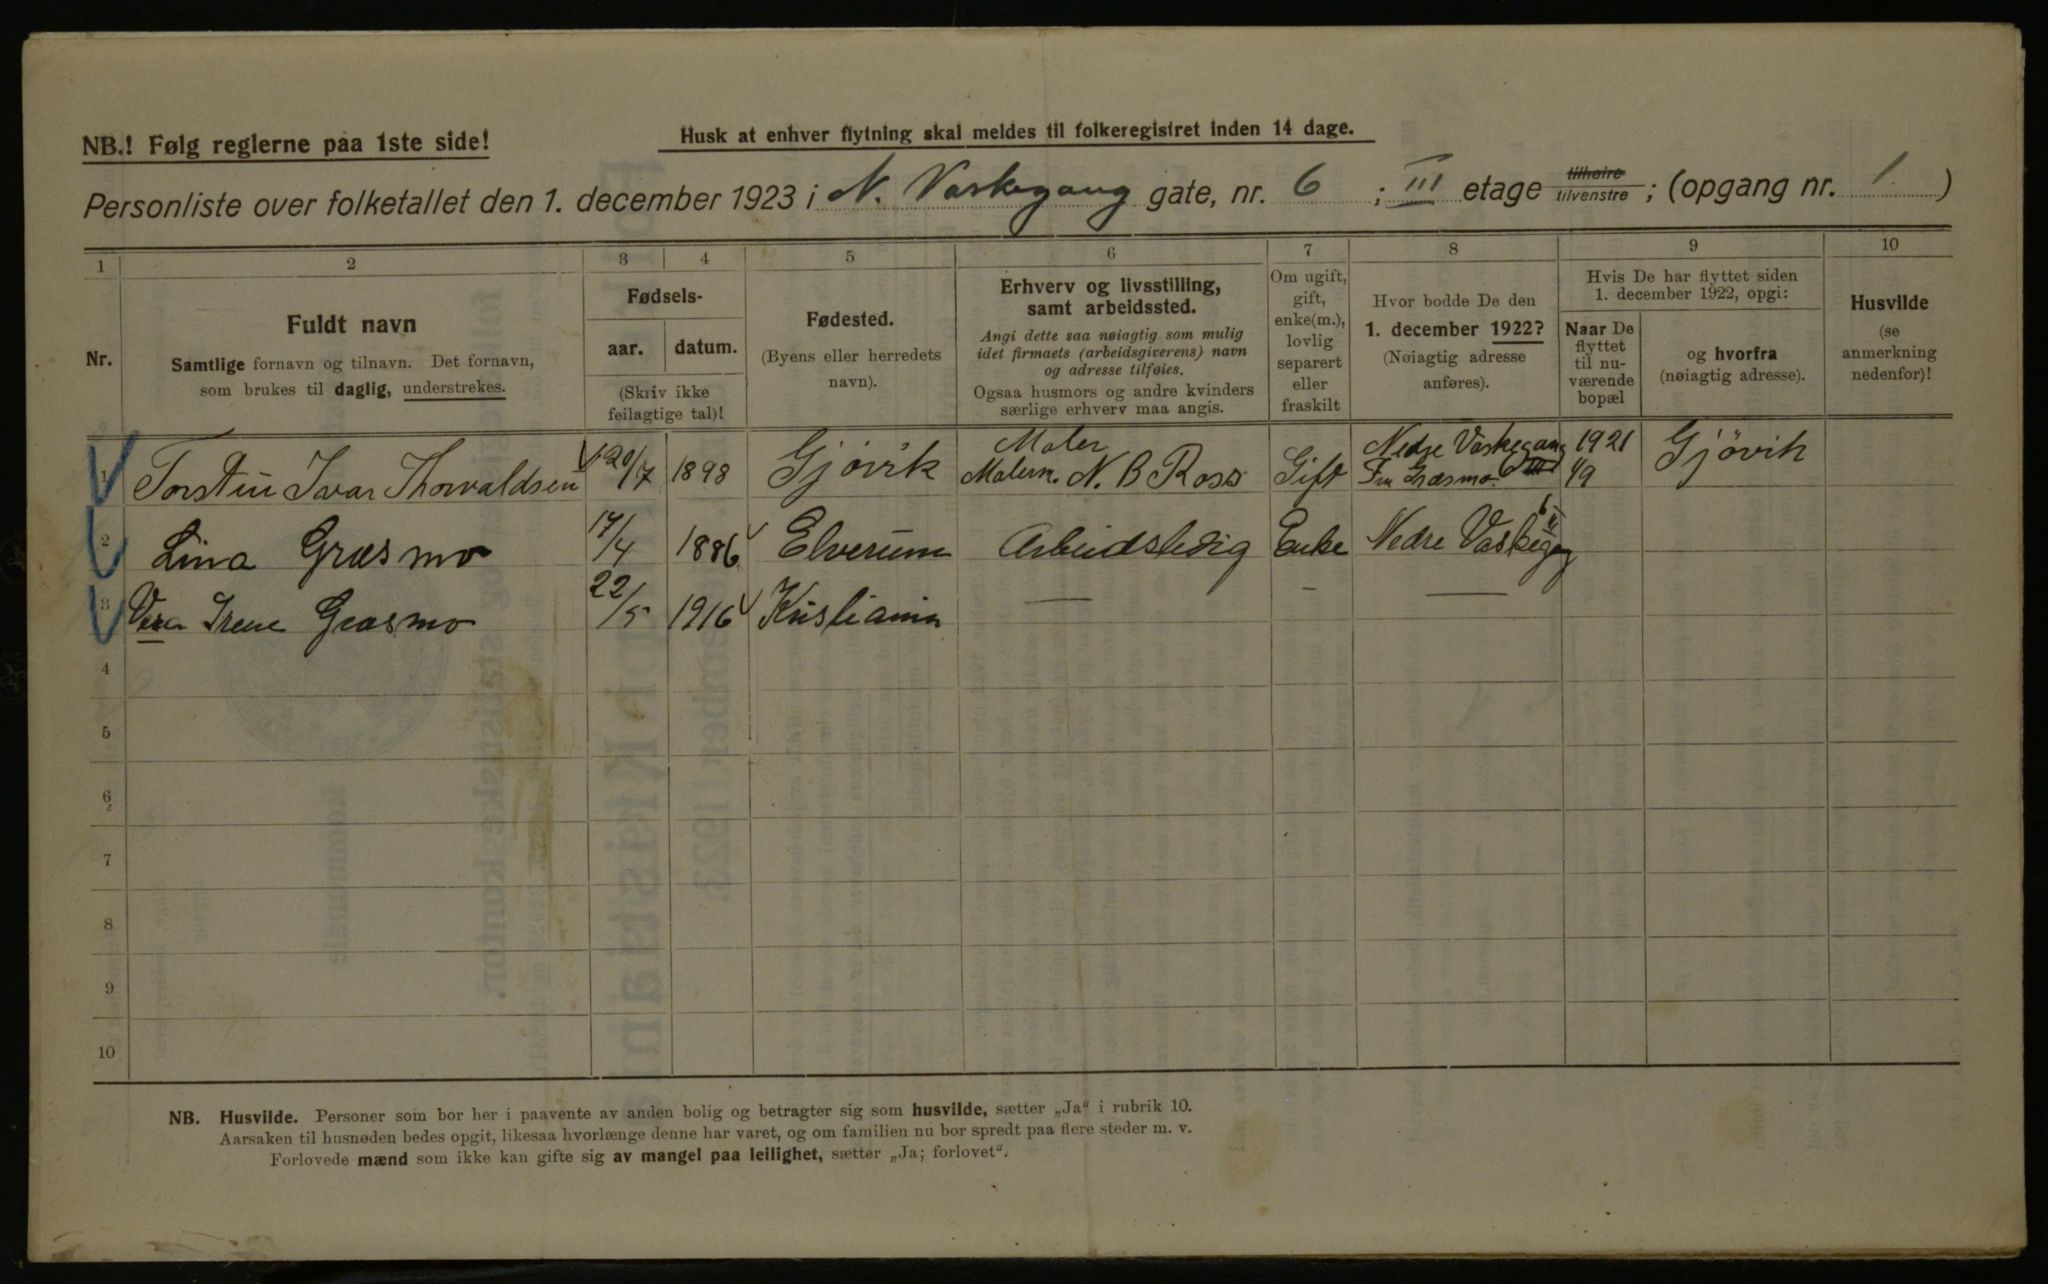 NB.! Følg reglerne paa 1ste side!
Husk at enhver flytning skal meldes til folkeregistret inden 14 dage.
Personliste over folketallet den 1. december 1923 i N. Vaskegang gate, nr. 6 ; III etage tilhøire tilvenstre ; (opgang nr. 1. )
1 2 3 4 5 6 7 8 9 10
Nr.
Fuldt navn
Samtlige fornavn og tilnavn. Det fornavn,
som brukes til daglig, understrekes.
Fødsels-
aar. datum.
(Skriv ikke
feilagtige tal)!
Fødested.
(Byens eller herredets
navn).
Erhverv og livsstilling,
samt arbeidssted.
Angi dette saa nøiagtig som mulig
idet firmaets (arbeidsgiverens) navn
og adresse tilføies.
Ogsaa husmors og andre kvinders
særlige erhverv maa angis.
Om ugift,
gift,
enke(m.),
lovlig
separert
eller
fraskilt
Hvor bodde De den
1. december 1922?
(Nøiagtig adresse
anføres).
Hvis De har flyttet siden
1. december 1922, opgi:
Naar De
flyttet
til nu-
værende
bopæl
og hvorfra
(nøiagtig adresse).
Husvilde
(se
anmerkning
nedenfor)!
1 Torstein Ivar Thorvaldsen 20/7 1898 Gjøvik Maler Malerm. N. B Ross Gift Nedre Vaskegang Fru Græsmo 1921 1/9 Gjövik
2 Lina Græsmo 17/4 1886 Elverum Arbeidsledig Enke Nedre Vaskegang 6
3 Vera Irene Græsmo 22/5 1916 Kristiania — — —
4
5
6
7
8
9
10
NB. Husvilde. Personer som bor her i paavente av anden bolig og betragter sig som husvilde, sætter „Ja“ i rubrik 10.
Aarsaken til husnøden bedes opgit, likesaa hvorlænge denne har varet, og om familien nu bor spredt paa flere steder m. v.
Forlovede mænd som ikke kan gifte sig av mangel paa leilighet, sætter „Ja; forlovet“.